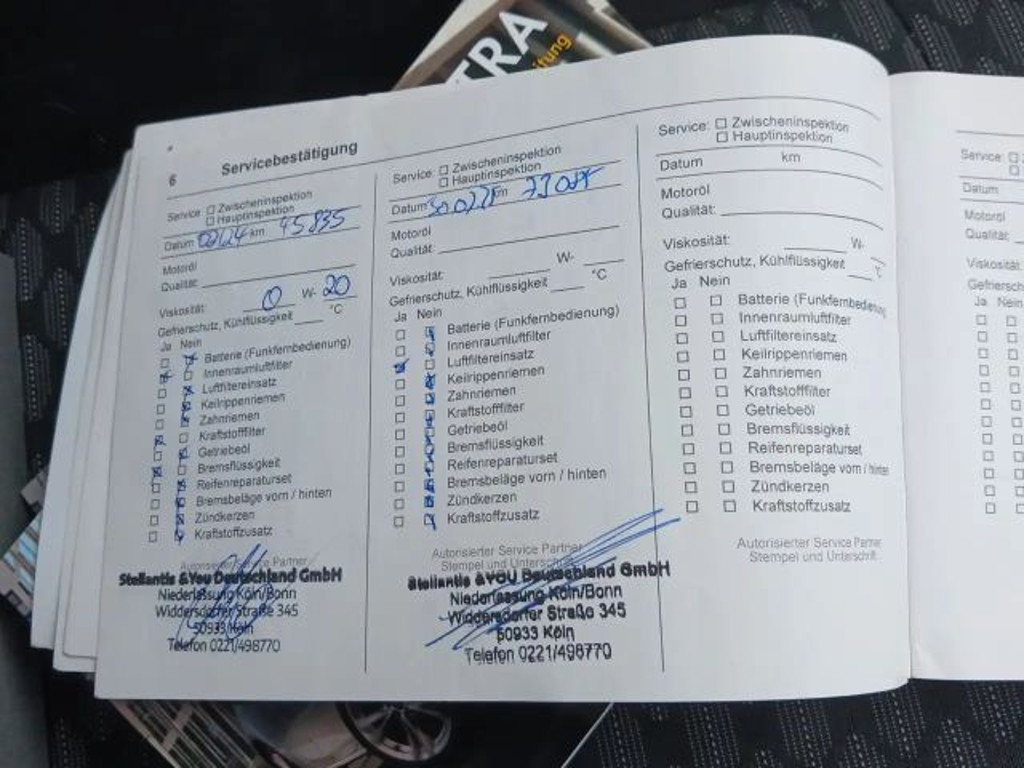 TRA
itung
6 Servicebestätigung
Service: □ Zwischeninspektion
□ Hauptinspektion
Datum 02/24 km 45835
Motoröl
Qualität:
Viskosität: 0 W- 20
Gefrierschutz, Kühlflüssigkeit °C
Ja Nein
Batterie (Funkfernbedienung)
Innenraumluftfilter
Luftfiltereinsatz
Keilrippenriemen
Zahnriemen
Kraftstofffilter
Getriebeöl
Bremsflüssigkeit
Reifenreparaturset
Bremsbeläge vorn / hinten
Zündkerzen
Kraftstoffzusatz
Autorisierter Service Partner
Stellantis &You Deutschland GmbH
Niederlassung Köln/Bonn
Widdersdorfer Straße 345
50933 Köln
Telefon 0221/498770
Service: □ Zwischeninspektion
□ Hauptinspektion
Datum km
Motoröl
Qualität:
Viskosität: W-
Gefrierschutz, Kühlflüssigkeit °C
Ja Nein
Batterie (Funkfernbedienung)
Innenraumluftfilter
Luftfiltereinsatz
Keilrippenriemen
Zahnriemen
Kraftstofffilter
Getriebeöl
Bremsflüssigkeit
Reifenreparaturset
Bremsbeläge vorn / hinten
Zündkerzen
Kraftstoffzusatz
Autorisierter Service Partner
Stempel und Unterschrift
Stellantis &YOU Deutschland GmbH
Niederlassung Köln/Bonn
Widdersdorfer Straße 345
50933 Köln
Telefon 0221/498770
Service: □ Zwischeninspektion
□ Hauptinspektion
Datum km
Motoröl
Qualität:
Viskosität: W-
Gefrierschutz, Kühlflüssigkeit °C
Ja Nein
Batterie (Funkfernbedienung)
Innenraumluftfilter
Luftfiltereinsatz
Keilrippenriemen
Zahnriemen
Kraftstofffilter
Getriebeöl
Bremsflüssigkeit
Reifenreparaturset
Bremsbeläge vorn / hinten
Zündkerzen
Kraftstoffzusatz
Autorisierter Service Partner
Stempel und Unterschrift
Service: □
Datum
Motoröl
Qualität:
Viskosität:
Gefriersch
Ja Nein